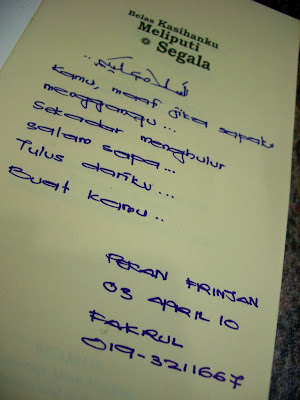 Belas Kasihanku
Meliputi
Segala
السلام عليكم..
Kamu, maaf jika sapaku
mengganggu...
Sekadar menghulur
salam sapa...
Tulus dariku...
Buat kamu..
PEKAN FRINJAN
03 APRIL 10
FAKRUL
019-3211667